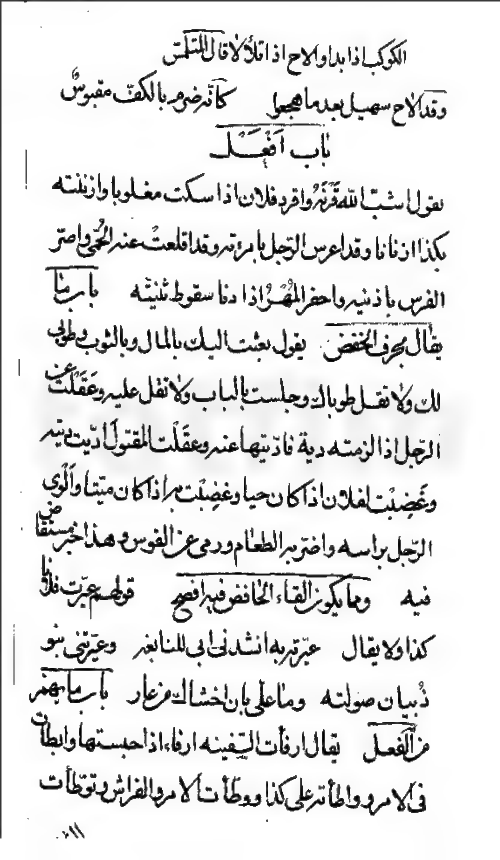 الكوكب اذا بدا والاح اذا تلألا قال المتلمس
وقد الاح سهيل بعد ما هجعوا كأنه ضرم بالكف مقبوس
باب أَفْعَـل
يقول اشبّ الله قَرْنَهُ واقرد فلان اذا سكت مغلوبا وازننته
بكذا ازنانا وقد اعرس الرجل بامرءته وقد اقلعتْ عنه الحُمّى واصرّ
الفرس باذنيه واحفر المُهْرُ اذا دنا سقوط ثنيّته باب ما
يقال بحرف الخفض يقول بعثت اليك بالمال وبالثوب وطوبى
لك ولا تقل طوباك وجلست بالباب ولا تقل عليه وعَقَلْتُ عن
الرجل اذا لزمته دية فاديتها عنه وعقلت المقتول اديت ديته
وغَضِبْت لفلان اذا كان حيا وغضِبْت به اذا كان ميتا وأَلْوى
الرجل براسه واضر بالطعام ورمى عن القوس وهذا خبر مستفاض
فيه ومما يكون القاء الخافض فيه افصح قولهم عيّرت فلانا
كذا ولا يقال عيّرته به انشدنى ابى للنابغه وعيّرتنى بنو
ذُبيان صولته وما علىّ بان اخشاك من عار باب ما يهمز
من الفعل يقال ارفأت السّفينه ارفاء اذا حبستها وابطأت
فى الامر وواطأته على كذا ووطّأت الامر والفراش وتوطّأت